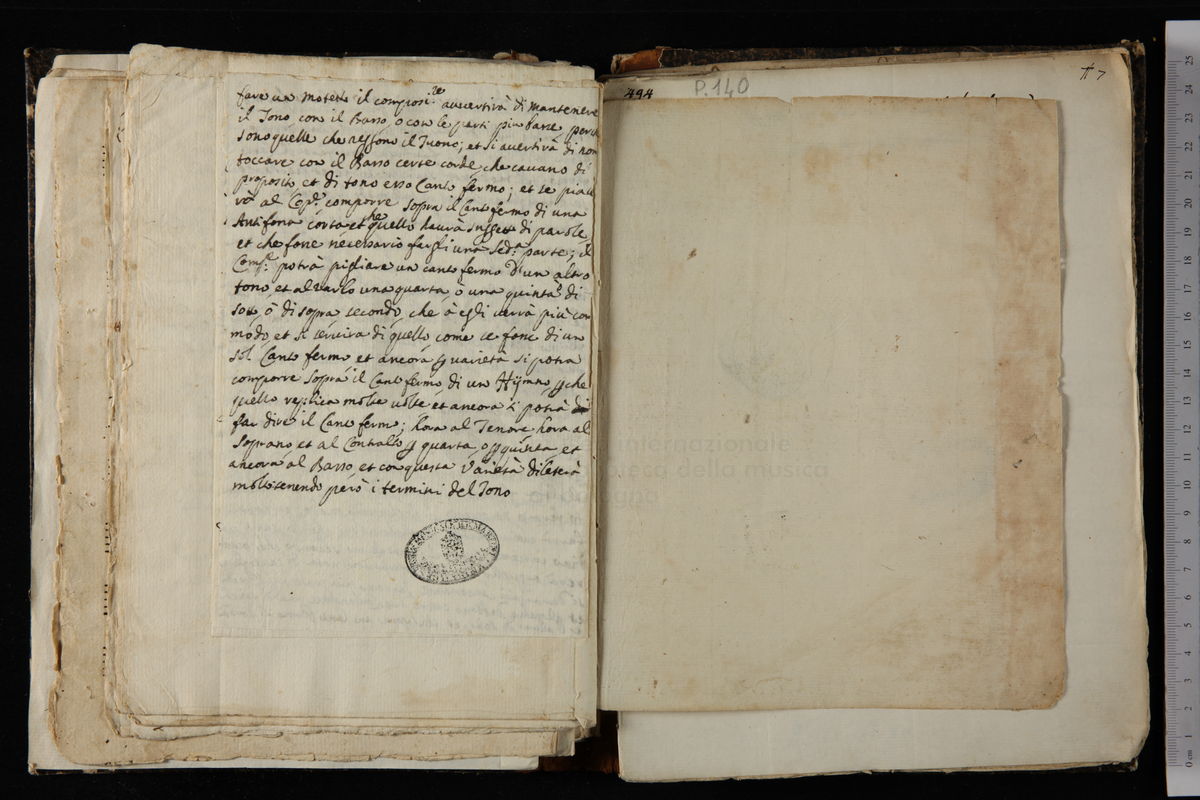 fare un motetto il composi.re avvertirà di mantenere
il Tono con il Basso, o con le parti più basse, perche
sono quelle che reggono il Tuono; et si avertirà di non
toccare con il Basso certe corde, che cavano di
proposito et di tono esso Canto fermo; et se piace
rà al Comp.re comporre sopra il Canto fermo di una
Antifona corta et che quello haurà suggetto di parole,
et che fone necessario fargli una sed.a parte; il
Comp.re potrà pigliare un canto fermo d'un altro
tono et alzarlo una quarta o una quinta di
sotto ò di sopra secondo che à egli verrà più com
modo et si servirà di quello come se fone di un
sol Canto fermo et ancora varietà si potrà
comporre sopra il Canto fermo di un Hijmno che
quello replica molte volte et ancora si potrà
far dire il Canto fermo; hora al Tenore hora al
Soprano et al Contralto quarta o quinta et
ancora al Basso et con questa varietà dileterà
molto tenendo però i termini del Tono
494
P. 140
internazionale
biblioteca della musica
25
24
23
22
21
20
19
18
17
16
15
14
13
12
11
10
9
8
7
6
5
4
3
2
1
0 cm